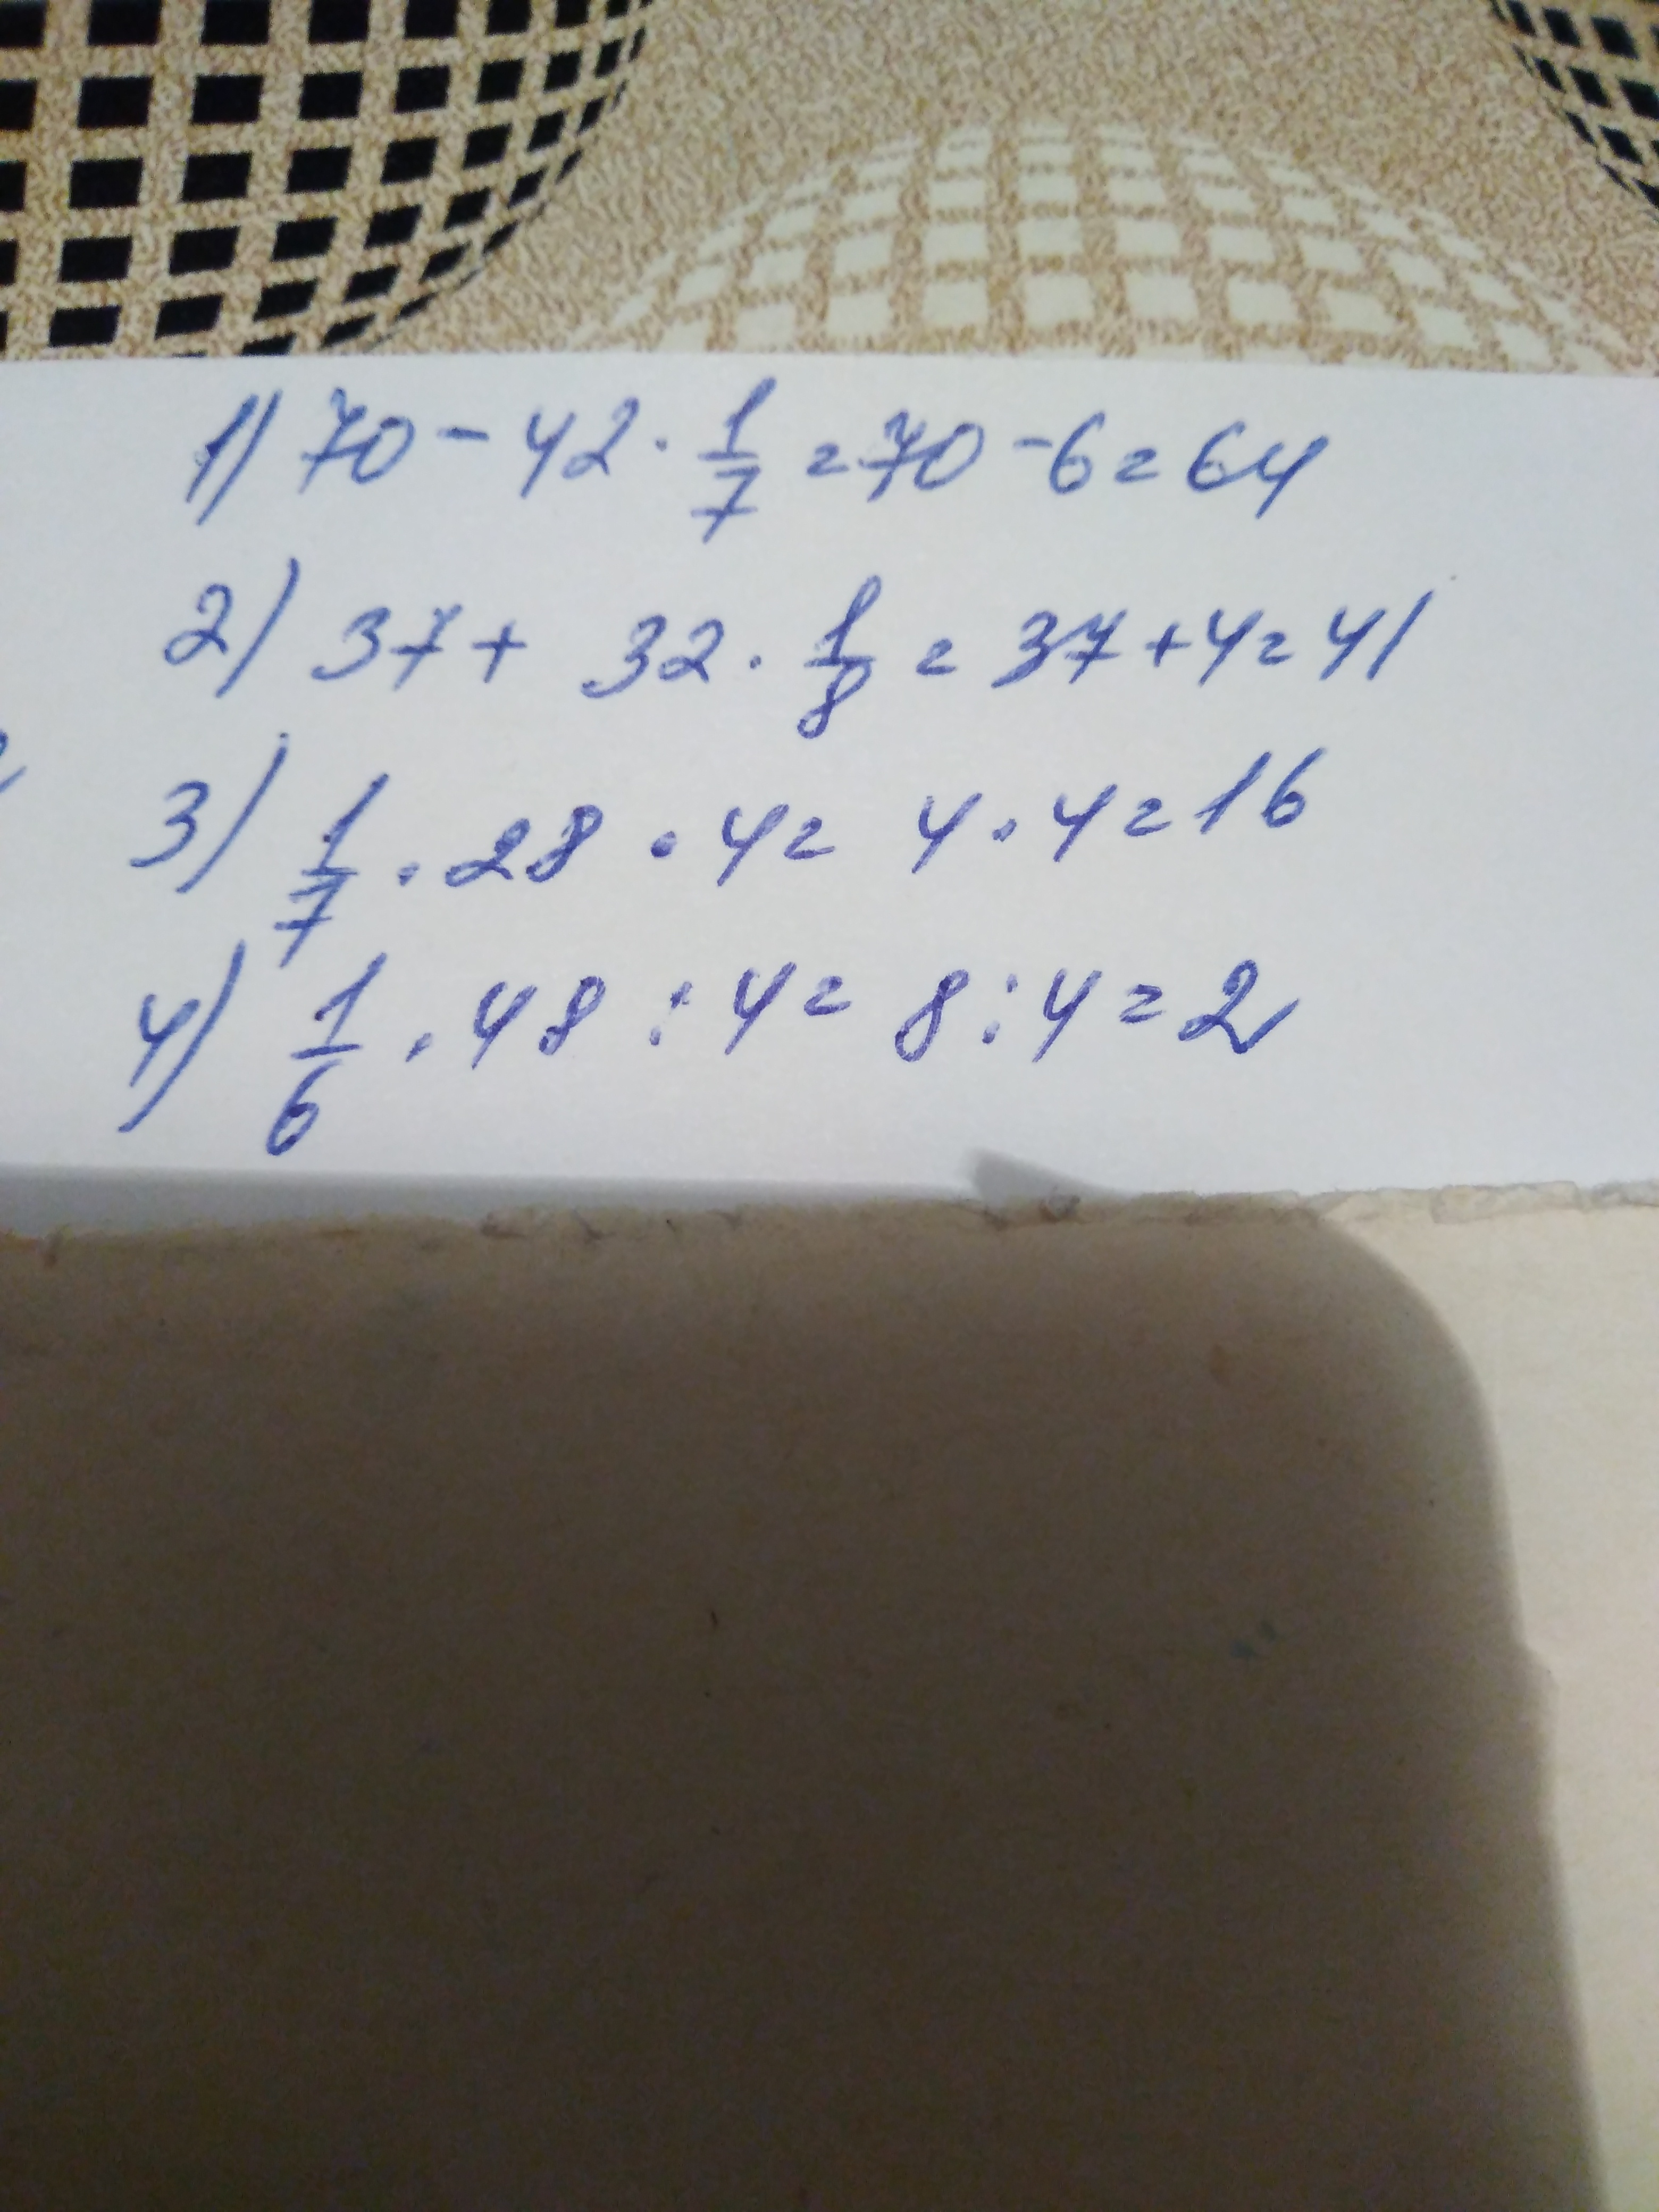 1) 70 - 42 · 1/7 = 70 - 6 = 64
2) 37 + 32 · 1/8 = 37 + 4 = 41
3) 1/7 · 28 · 4 = 4 · 4 = 16
4) 1/6 · 48 : 4 = 8 : 4 = 2